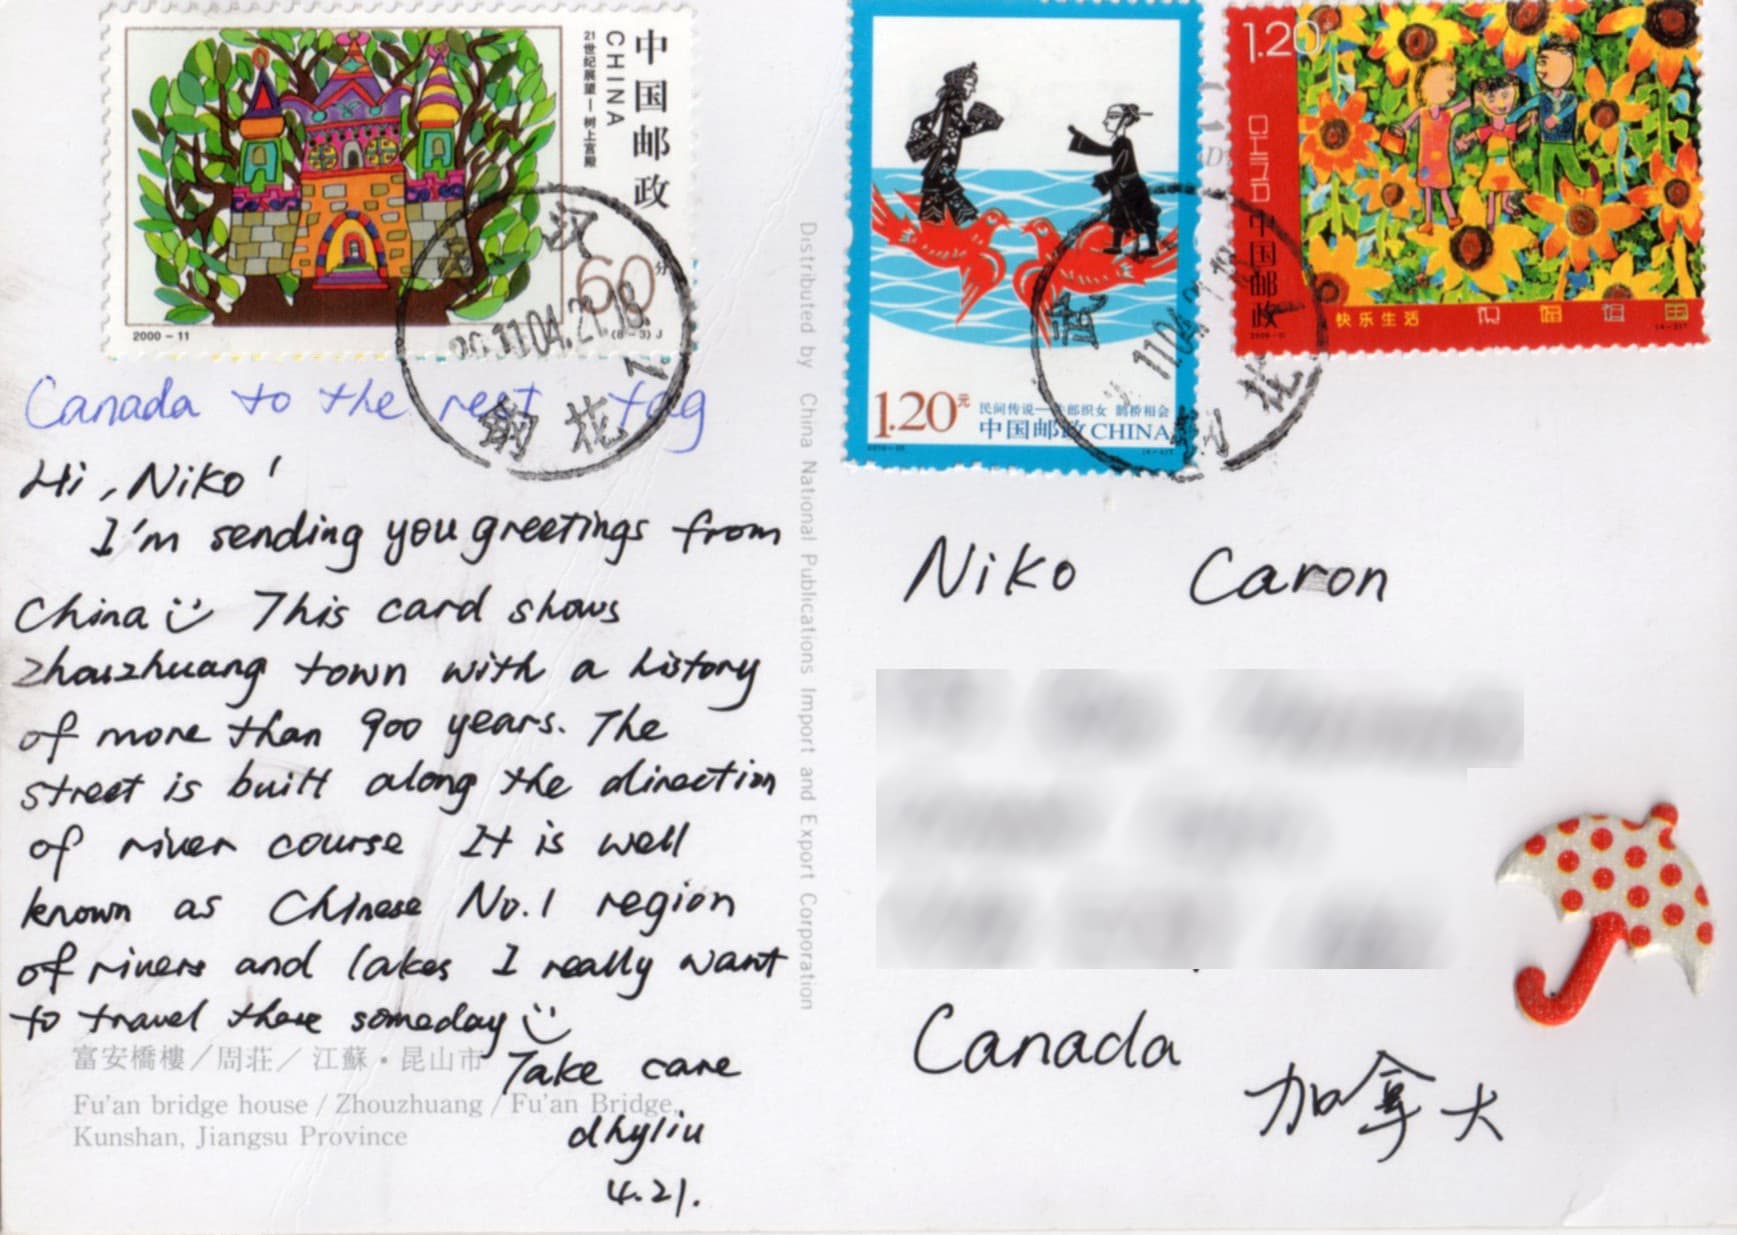 中国邮政
CHINA
21世纪展望—树上宫殿
60分
2000-11
(8-3) J
武汉
2011.04.21.18
花
1.20元
民间传说—牛郎织女 鹊桥相会
中国邮政 CHINA
1.20
CHINA
中国邮政
快乐生活
11.04.2
花
Canada to the rest tag
Hi, Niko!
I'm sending you greetings from
China This card shows
Zhouzhuang town with a history
of more than 900 years. The
street is built along the direction
of river course It is well
known as Chinese No.1 region
of rivers and lakes I really want
to travel there someday
Take care
dhyliu
4.21.
富安橋樓／周莊／江蘇・昆山市
Fu'an bridge house / Zhouzhuang / Fu'an Bridge,
Kunshan, Jiangsu Province
Distributed by China National Publications Import and Export Corporation
Niko Caron
Canada
加拿大